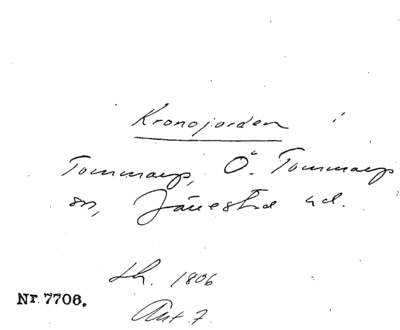 Kronojorden
Tommarp, Ö. Tommarp
sn, Järrestad hd.
Lh. 1806
Akt. 7.
Nr. 7706.